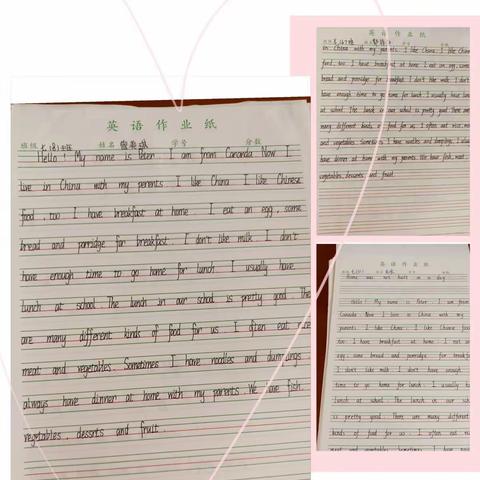 英语作业纸
班级 姓名 学号 分数
Hello! My name is Peter. I am from Cananda Now I
live in China with my parents. I like China I like Chinese
food, too I have breakfast at home. I eat an egg, some
bread and porridge for breakfast. I don't like milk I don't
have enough time to go home for lunch I usually have
lunch at school. The lunch in our school is pretty good The
are many different kinds of food for us. I often eat rice
meat and vegetables. Sometimes I have noodles and dumplings
always have dinner at home with my parents We have fish
vegetables, dessrts and fruit
英语作业纸
in China with my parents. I like China. I like Chinese
food, too. I have breakfast at home. I eat an egg, some
bread and porridge for breakfast. I don't like milk. I don't
have enough time to go home for lunch. I usually have lunch
at school. The lunch in our school is pretty good. There are
many different kinds of food for us. I often eat rice, meat
and vegetables. Sometimes I have noodles and dumplings. I always
have dinner at home with my parents. We have fish, meat,
vegetables, desserts and fruit.
英语作业纸
Rome was not built in a day
Hello! My name is Peter. I am from
Cananda Now I live in China with my
parents I like China. I like Chinese food
too. I have breakfast at home. I eat an
egg, some bread and porridge for breakfa
I don't like milk I don't have enough
time to go home for lunch. I usually ha
lunch at school. The lunch in our school
is pretty good There are many different
kinds of food for us. I often eat
meat and vegetables. Sometimes I have